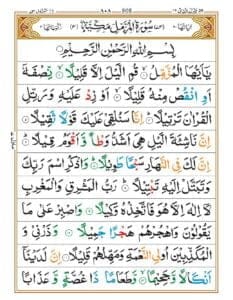 سُوْرَةُ الْمُزَّمِّلِ مَكِّيَّةٌ
بِسْمِ اللهِ الرَّحْمٰنِ الرَّحِيْمِ
يٰٓاَيُّهَا الْمُزَّمِّلُ ۙ قُمِ الَّيْلَ اِلَّا قَلِيْلًا ۙ نِّصْفَهٗٓ
اَوِ انْقُصْ مِنْهُ قَلِيْلًا ۙ اَوْ زِدْ عَلَيْهِ وَرَتِّلِ
الْقُرْاٰنَ تَرْتِيْلًا ؕ اِنَّا سَنُلْقِيْ عَلَيْكَ قَوْلًا ثَقِيْلًا
اِنَّ نَاشِئَةَ الَّيْلِ هِيَ اَشَدُّ وَطْاً وَّ اَقْوَمُ قِيْلًا ؕ
اِنَّ لَكَ فِي النَّهَارِ سَبْحًا طَوِيْلًا ؕ وَاذْكُرِ اسْمَ رَبِّكَ
وَتَبَتَّلْ اِلَيْهِ تَبْتِيْلًا ؕ رَبُّ الْمَشْرِقِ وَالْمَغْرِبِ
لَآ اِلٰهَ اِلَّا هُوَ فَاتَّخِذْهُ وَكِيْلًا ؕ وَاصْبِرْ عَلٰى مَا
يَقُوْلُوْنَ وَاهْجُرْهُمْ هَجْرًا جَمِيْلًا ؕ وَذَرْنِيْ وَ
الْمُكَذِّبِيْنَ اُولِي النَّعْمَةِ وَمَهِّلْهُمْ قَلِيْلًا ؕ اِنَّ لَدَيْنَآ
اَنْكَالًا وَّجَحِيْمًا ۙ وَّطَعَامًا ذَا غُصَّةٍ وَّعَذَابًا